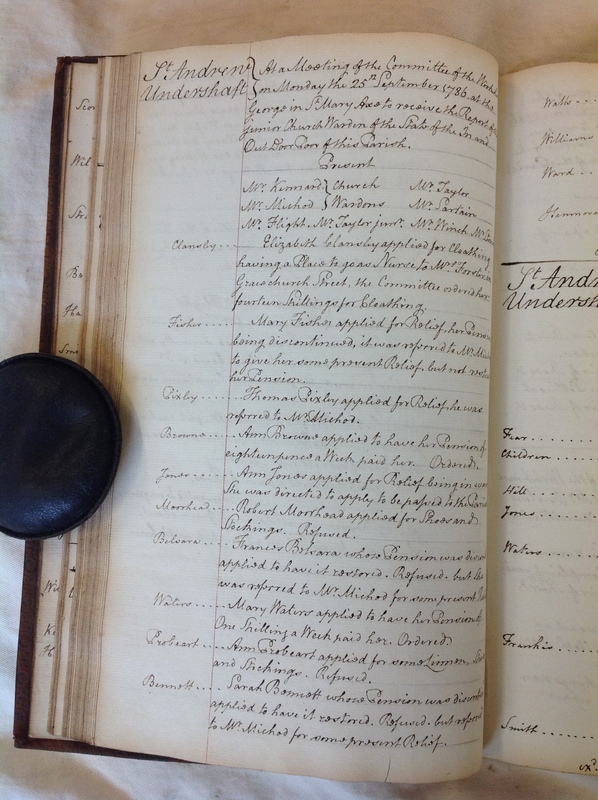 St. Andrew
Undershaft
At a Meeting of the Committee of the Workh
on Monday the 25th September 1786 at the
George in St Mary Axe to receive the Report of
Junior Church Warden of the State of the In and
Out Door Poor of this Parish.
Present
Mr. Kennard Church Mr. Taylor
Mr. Michod Wardens Mr. Partain
Mr. Flight, Mr. Taylor junr. Mr. Winch Mr.
Clansby.... Elizabeth Clansby applied for Cloathing
having a Place to go as Nurse to Mrs.
Gracechurch Street, the Committee ordered her
fourteen Shillings for Cloathing.
Fisher........ Mary Fisher applied for Relief, her Pension
being discontinued, it was referred to Mr. Mich
to give her some present Relief, but not resto
her Pension.
Pixley...... Thomas Pixley applied for Relief, he was
referred to Mr. Michod.
Browne...... Ann Browne applied to have her Pension of
eighteen pence a Week paid her. Ordered.
Jones....... Ann Jones applied for Relief being in
She was directed to apply to be passed to the
Moorhead... Robert Moorhead applied for Shoes and
Stockings. Refused.
Belsara.... Frances Belsara whose Pension was discon
applied to have it restored. Refused. but She
was referred to Mr. Michod for some present
Waters...... Mary Waters applied to have her Pension of
One Shilling a Week paid her. Ordered.
Probeart.... Ann Probeart applied for some Linnen,
and Stockings. Refused.
Bennett.... Sarah Bennett whose Pension was discontin
applied to have it restored. Refused. but referred
to Mr. Michod for some present Relief.
Watts...
Williams
Ward...
St. Andre
Undersha
Fear......
Children....
Hill......
Jones.....
Waters....
Frankis...
Smith.....